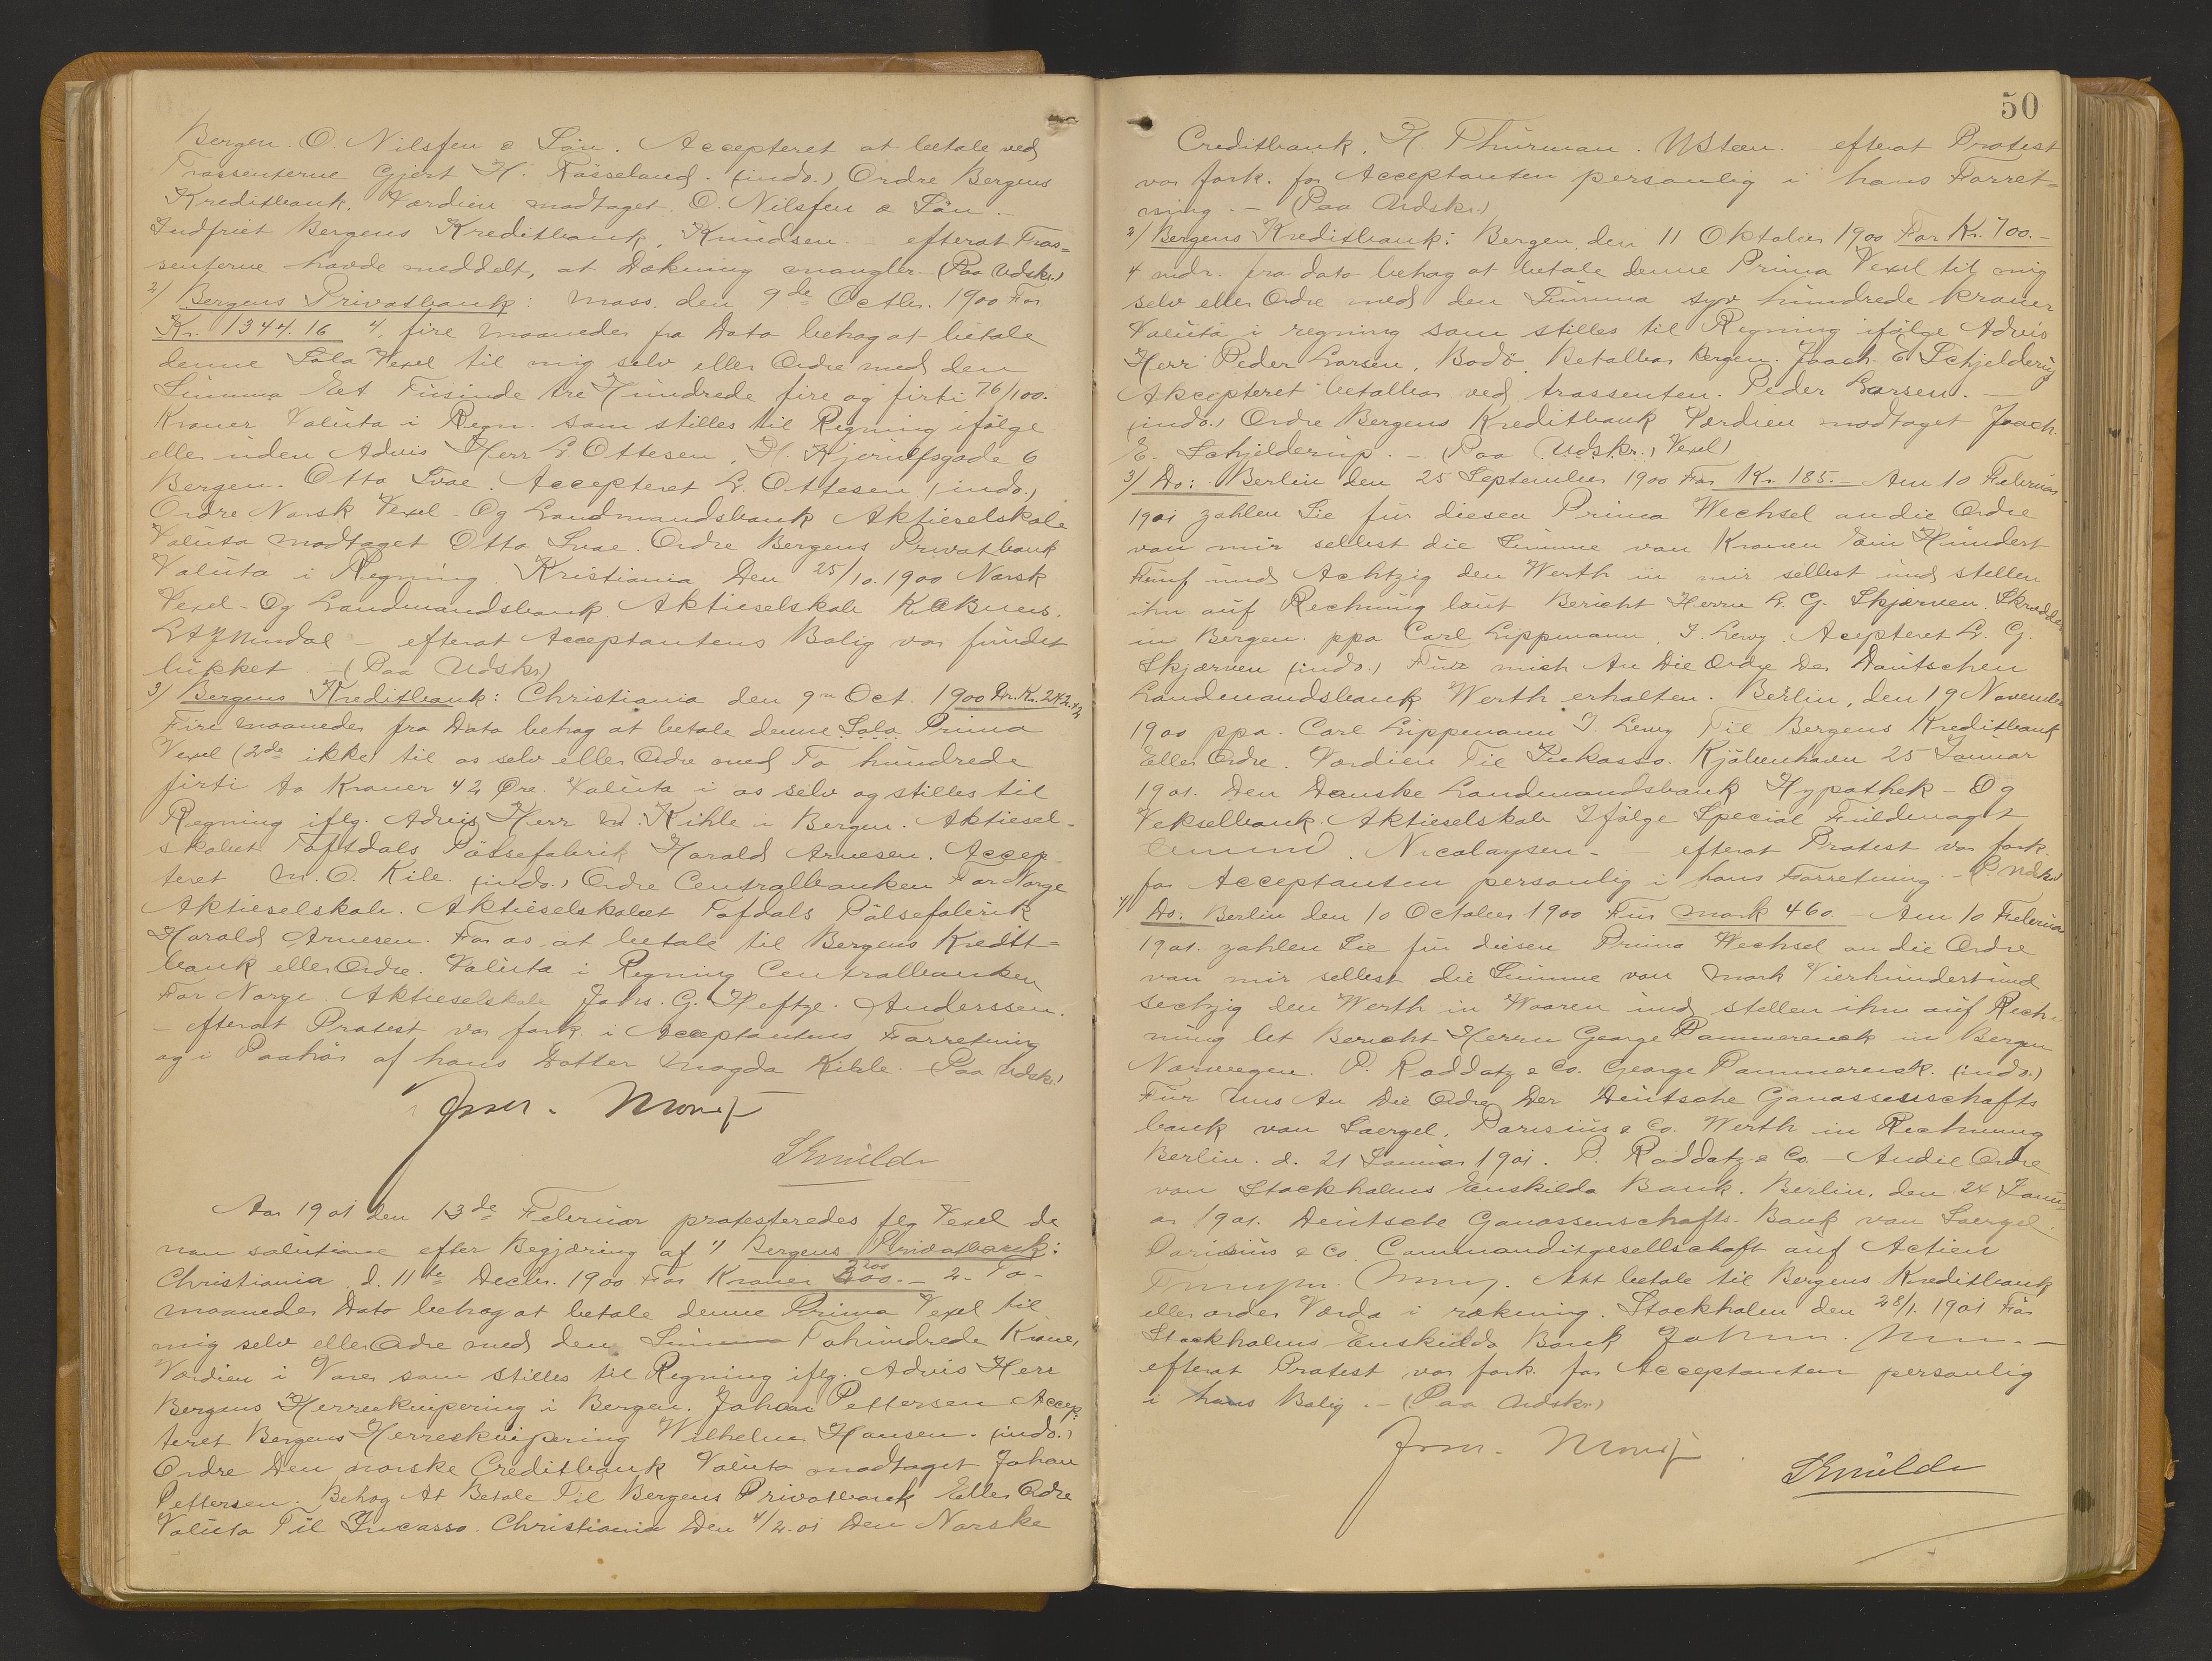 Bergen. O. Nilsfen & Sön. Accepteret at betale ved
Trassenterne Gjert H. Fösseland. (indo.) Ordre Bergens
Kreditbank. Værdien modtaget. O. Nilsfen & Sön.-
Indfriet Bergens Kreditbank, Knudsen. - efterat Tras=
senterne havde meddelt, at Dækning mangler. (Paa Udskr.)
2) Bergens Privatbank: Moss. den 9de Octbr. 1900 For
Kr. 1344.16 4. fire Maaneder fra Dato behag at betale
denne Sola Vexel til mig selv eller Ordre med den
Summa Et Tusinde tre Hundrede fire og firti 16/100.
Kroner Valuta i Regn. som stilles til Regning ifølge
eller uden Advis Herr L. Ottesen, H. Kjerulfsgade 6
Bergen. Otto Svae. Accepteret L. Ottesen (indo.)
Ordre Norsk Vexel- Og Landmandsbank Aktieselskab
Valuta Modtaget Otto Svae. Ordre Bergens Privatbank
Valuta i Regning. Kristiania Den 25/10. 1900 Norsk
Vexel- Og Landmandsbank Aktieselskab
- efterat Acceptantens Bolig var fundet
lukket - (Paa Udskr)
3) Bergens Kreditbank: Christiania den 9n Oct. 1900 Kr. 242.42
Fire Maaneder fra Dato behag at betale denne Sola Prima
Vexel (2de ikke) til os selv eller Ordre med To hundrede
firti to Kroner 42 Øre. Valuta i os selv og stilles til
Regning iflg. Advis Herr M. Kihle i Bergen. Aktiesel-
skabet Toftdals Pölsefabrik Harald Arnesen. Accep
teret M. O. Kile. (indo.) Ordre Centralbanken For Norge
Aktieselskab. Aktieselskabet Tofdals Pölsefabrik
Harald Arnesen. For os at betale til Bergens Kredit=
bank eller Ordre. Valuta i Regning Centralbanken
For Norge. Aktieselskab Johs. G. Heftye. Anderssen.
- efterat Protest var fork. i Acceptantens Forretning
og i Paahör af hans Datter Magda Kihle. - (Paa Udskr.)
Aar 1901 den 13de Februar protesteredes flg Vexel de
non solutione efter Begjæring af 1) Bergens Privatbank:
Christiania d. 11te Decbr. 1900 For Kroner 200.- 2- To-
maaneder Dato behag at betale denne Prima Vexel til
mig selv eller Ordre med den Summa Tohundrede Kroner,
Værdien i Varer som stilles til Regning iflg. Advis Herr
Bergens Herreekvipering i Bergen. Johan Pettersen Accep:
teret Bergens Herreekvipering Wilhelm Hansen. (indo.)
Ordre Den norske Creditbank Valuta modtaget Johan
Pettersen. Behag At Betale Til Bergens Privatbank Eller Ordre
Valuta Til Incasso. Christiania Den 4/2.01 Den Norske
50
Creditbank. H. Thurman. efterat Protest
var fork. for Acceptanten personlig i hans Forret=
ning.- (Paa Udskr.)
2) Bergens Kreditbank: Bergen den 11 Oktober 1900 For Kr. 700.-
4 mdr. fra dato behag at betale denne Prima Vexel til mig
selv eller Ordre med den Summa syv hundrede kroner
Valuta i regning som stilles til Regning ifölge Advis
Herr Peder Larsen, Bodö. Betalbar Bergen. Joach. E. Schjelderup
Akcepteret betalbar ved trassenten. Peder Larsen.-
(indo.) Ordre Bergens Kreditbank Værdien modtaget Joach.
E. Schjelderup.- (Paa Udskr.) Vexel)
3) Do: Berlin den 25 September 1900 Für Kr. 185.- Am 10 Februar
1901 zahlen Sie für diesen Prima Wechsel an die Ordre
von mir selbst die Summe von Kronen Ein Hundert
Fünf und Achtzig den Werth in mir selbst und stellen
ihn auf Rechnung laut Bericht Herrn L. G. Skjærven, Skrædder
in Bergen. ppa Carl Lippmann, I. Lewy. Acepteret L. G.
Skjærven (indo.) Für mich An Die Ordre Der Dautschen
Landmandsbank Werth erhalten. Berlin, den 19 November
1900 ppa. Carl Lippmann I Lewy Til Bergens Kreditbank
Eller Ordre. Værdien Til Inkasso. Kjöbenhavn 25 Januar
1901. Den Danske Landmandsbank Hypothek- Og
Vekselbank. Aktieselskab Ifölge Special Fuldmagt
Nicolaysen.- - efterat Protest var fork.
for Acceptanten personlig i hans Forretning.- (P Udskr)
4) Do: Berlin den 10 October 1900 Für Mark 460.- Am 10 Februar
1901. zahlen Sie für diesen Prima Wechsel an die Ordre
von mir selbst die Summe von Mark Vierhundertund
sechzig den Werth in Waaren und stellen ihn auf Rech-
nung lt Bericht Herrn George Pommerenck in Bergen
Norwegen. P. Raddatz & Co. George Pommerensk. (indo.)
Für Uns An Die Ordre Der Deutsche Genossensschafts
bank von Soergel, Parisius & Co. Werth in Rechnung
Berlin. d. 21 Januar 1901. P. Raddatz & Co.- An die Ordre
von Stockholms Enskilda Bank. Berlin. den 24 Janu
ar 1901. Deutsche Genossenschafts-Bank von Soergel.
Parisius & Co. Commanditgesellschaft auf Actien
Att betale til Bergens Kreditbank
eller order Värda i räkning. Stockholm den 28/1. 1901 För
Stockholms Enskilda Bank
efterat Protest var fork. for Acceptanten personlig
i hans Bolig.- (Paa Udskr.)